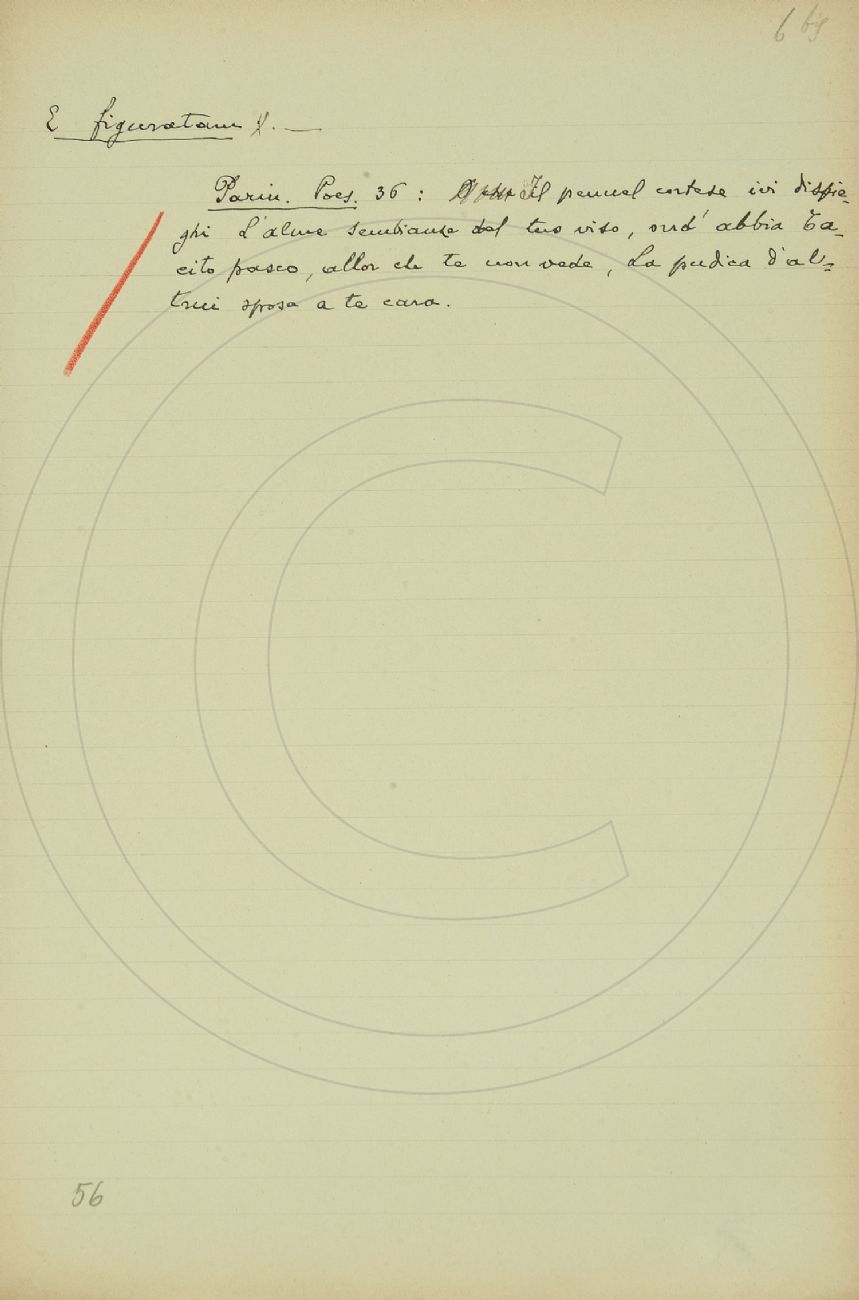 6 bis
E figuratam. —
Parin. Poes. 36 : Il pennel cortese ivi dispie-
ghi L'alme sembianze del tuo viso, ond' abbia Ta-
cito pasco, allor che te non vede, La pudica d'al-
trui sposa a te cara.
56